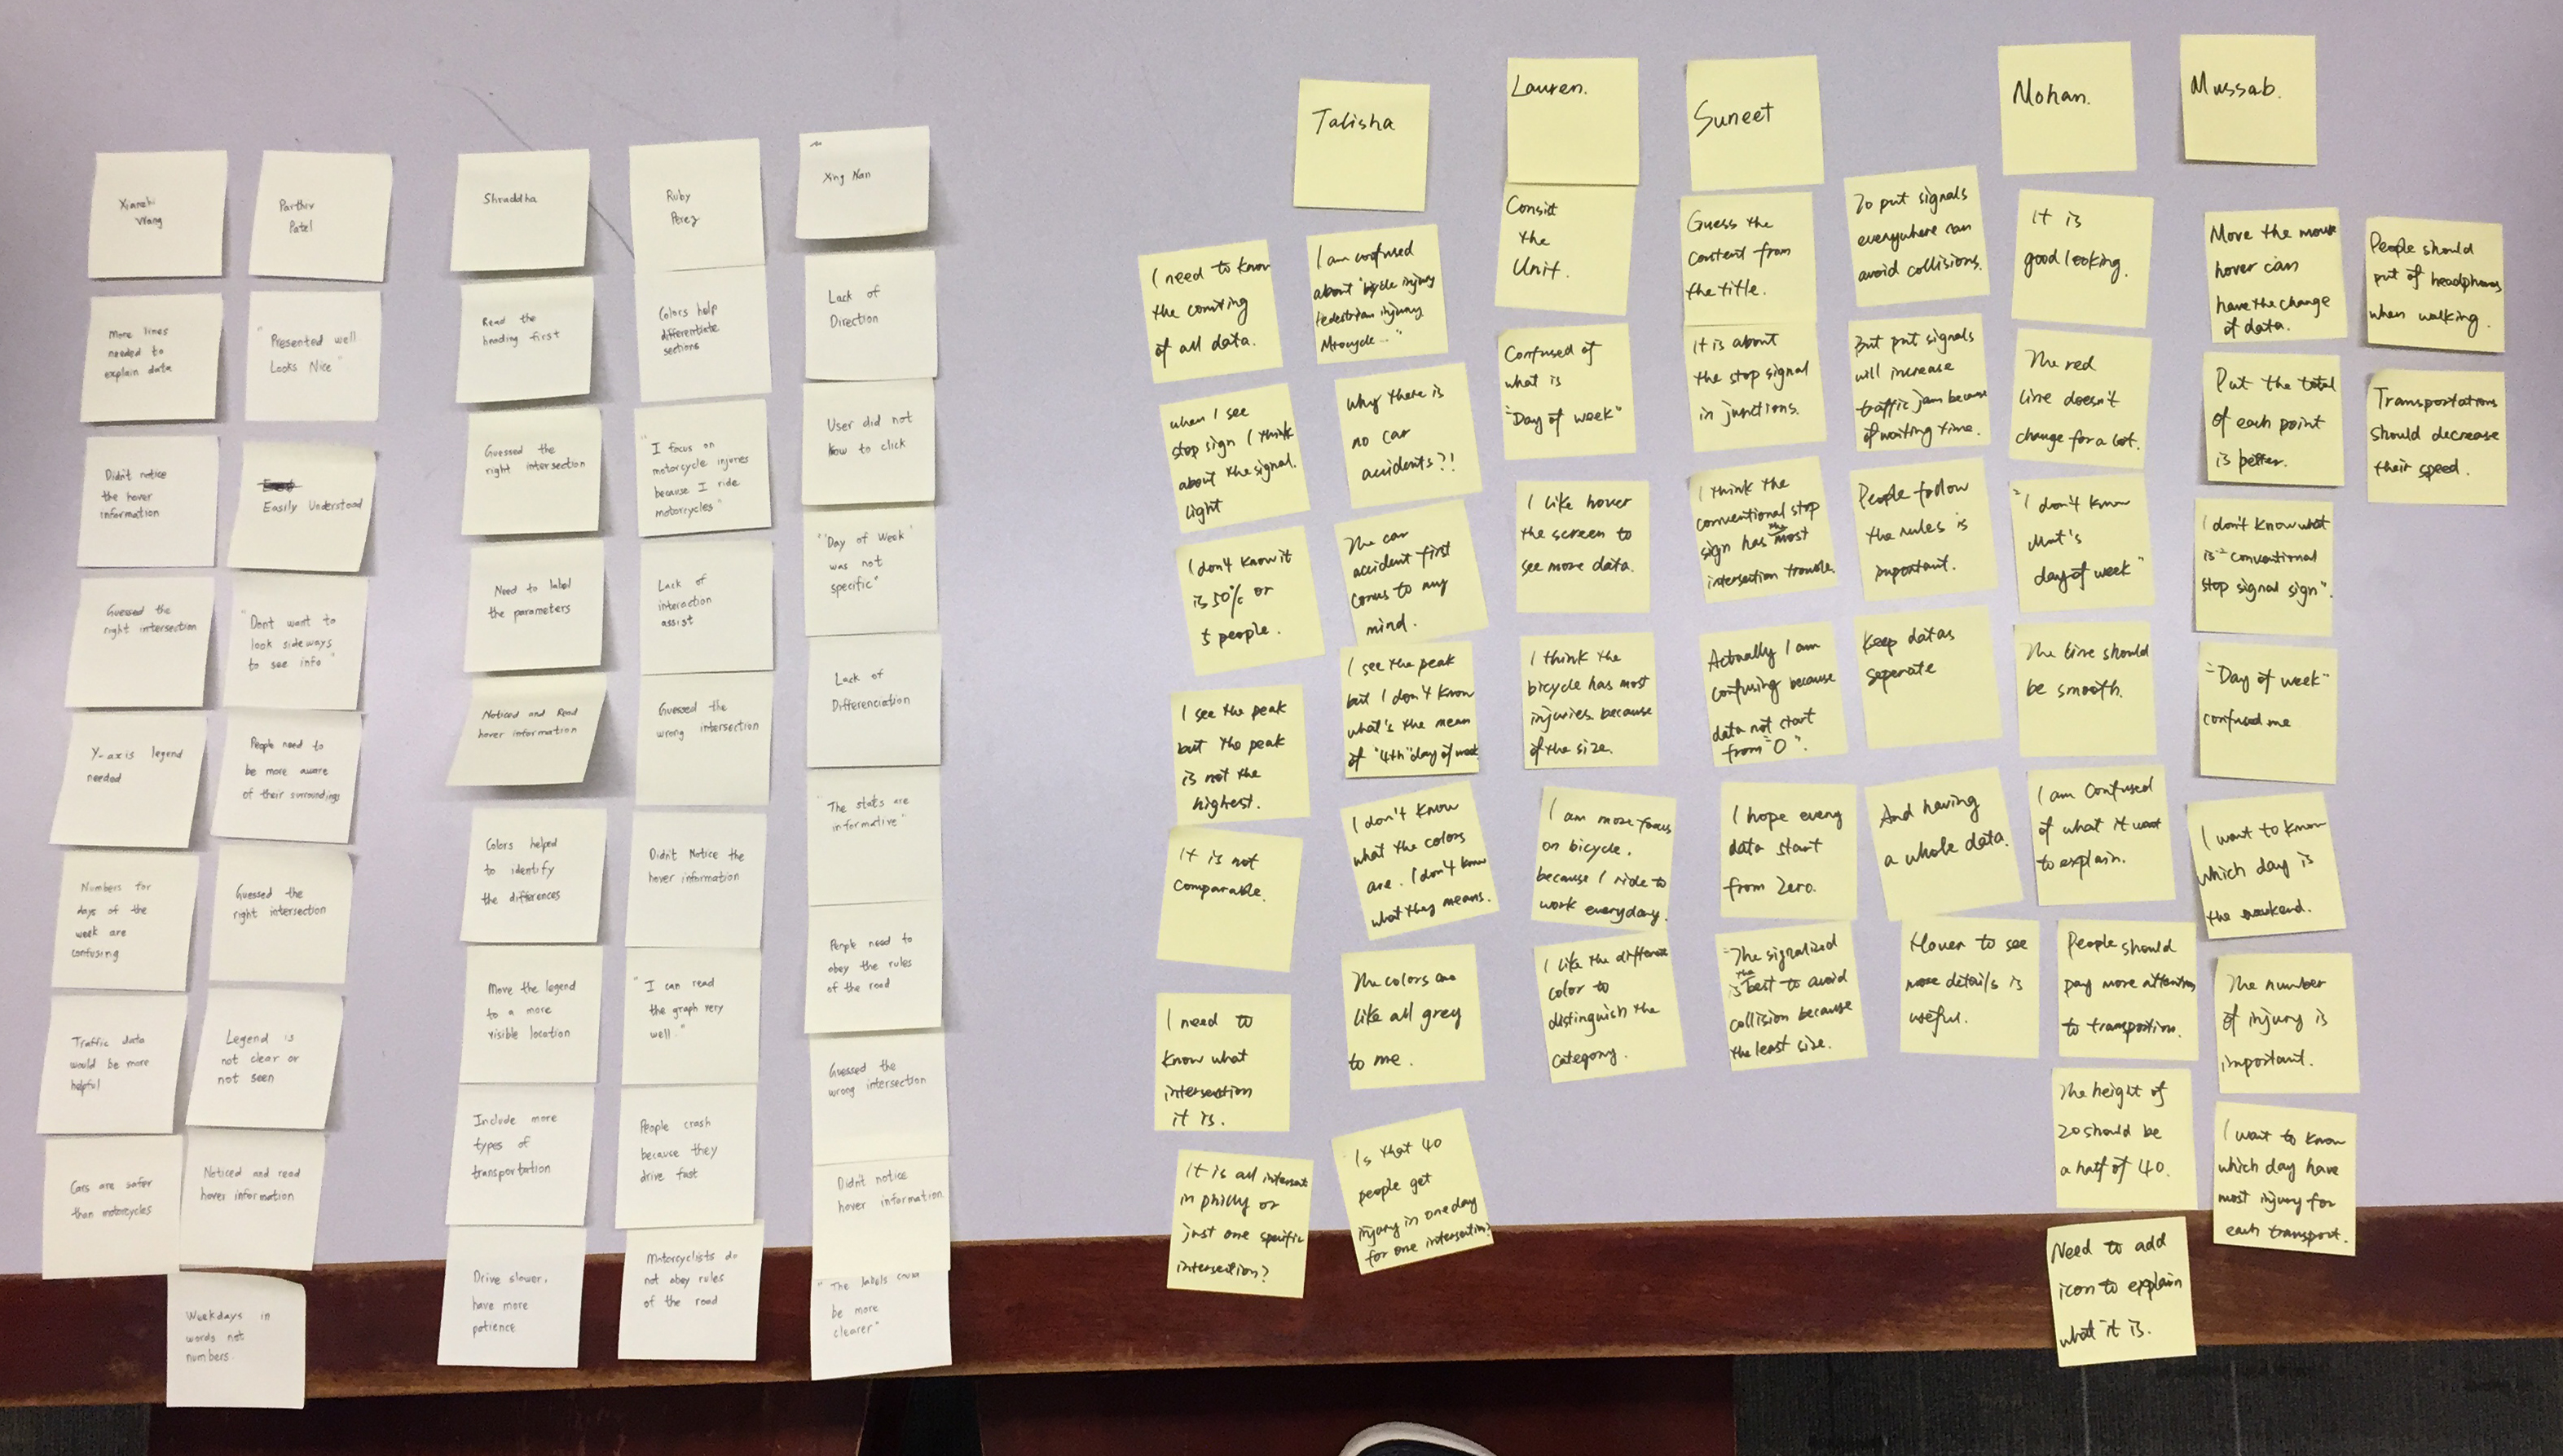 Xianzhi
Wang
More lines
needed to
explain data
Didn't notice
the hover
information
Guessed the
right intersection
Y-axis legend
needed
Numbers for
days of the
week are
confusing
Traffic data
would be more
helpful
Cars are safer
than motorcycles
Parthiv
Patel
"Presented well
Looks Nice"
Easily Understood
"Dont want to
look sideways
to see info"
People need to
be more aware
of their surroundings
Guessed the
right intersection
Legend is
not clear or
not seen
Noticed and read
hover information
Weekdays in
words not
numbers.
Shraddha
Read the
heading first
Guessed the
right intersection
Need to label
the parameters
Noticed and Read
hover information
Colors helped
to identify
the differences
Move the legend
to a more
visible location
Include more
types of
transportation
Drive slower,
have more
patience
Ruby
Perez
Colors help
differentiate
sections
"I focus on
motorcycle injures
because I ride
motorcycles"
Lack of
interaction
assist
Guessed the
wrong intersection
Didn't Notice the
hover information
"I can read
the graph very
well."
People crash
because they
drive fast
Motorcyclists do
not obey rules
of the road
Xing Nan
Lack of
Direction
User did not
how to click
"'Day of Week'
was not
specific"
Lack of
Differenciation
"The stats are
informative"
People need to
obey the rules
of the road
Guessed the
wrong intersection
Didn't notice
hover information
"The labels could
be more
clearer"
Talisha
I need to know
the counting
of all data.
when I see
stop sign I think
about the signal.
light
I don't know it
is 50% or
5 people.
I see the peak
but the peak
is not the
highest.
It is not
comparable.
I need to
know what
intersection
it is.
It is all intersect
in philly or
just one specific
intersection?
I am confused
about "bicycle injury
Pedestrian injury
Mtocycle..."
Why there is
no car
accidents?!
The car
accident first
comes to my
mind.
I see the peak
but I don't know
what's the mean
of "4th" day of week
I don't know
what the colors
are. I don't know
what they means.
The colors are
like all grey
to me.
Is that 40
people get
injury in one day
for one intersection?
Lauren.
Consist
the
Unit.
Confused of
what is
"Day of week"
I like hover
the screen to
see more data.
I think the
bicycle has most
injuries. because
of the size.
I am more focus
on bicycle.
because I ride to
work everyday.
I like the difference
color to
distinguish the
category.
Suneet
Guess the
content from
the title.
It is about
the stop signal
in junctions.
I think the
conventional stop
sign has the most
intersection trouble.
Actually I am
confusing because
data not start
from "0".
I hope every
data start
from Zero.
"The signalized
is the best to avoid
collision because
the least size.
To put signals
everywhere can
avoid collisions.
But put signals
will increase
traffic jam because
of waiting time.
People follow
the rules is
important.
Keep datas
seperate
And having
a whole data.
Hover to see
more details is
useful.
Mohan.
It is
good looking.
The red
line doesn't
change for a lot.
"I don't know
what's
day of week"
The line should
be smooth.
I am Confused
of what it want
to explain.
People should
pay more attention
to transportion.
The height of
20 should be
a half of 40.
Need to add
icon to explain
what it is.
Mussab.
Move the mouse
hover can
have the change
of data.
Put the total
of each point
is better.
I don't know what
is "conventional
stop signal sign".
"Day of week"
confused me
I want to know
which day is
the weekend.
The number
of injury is
important.
I want to know
which day have
most injury for
each transport.
People should
put of headphones
when walking.
Transportations
should decrease
their speed.